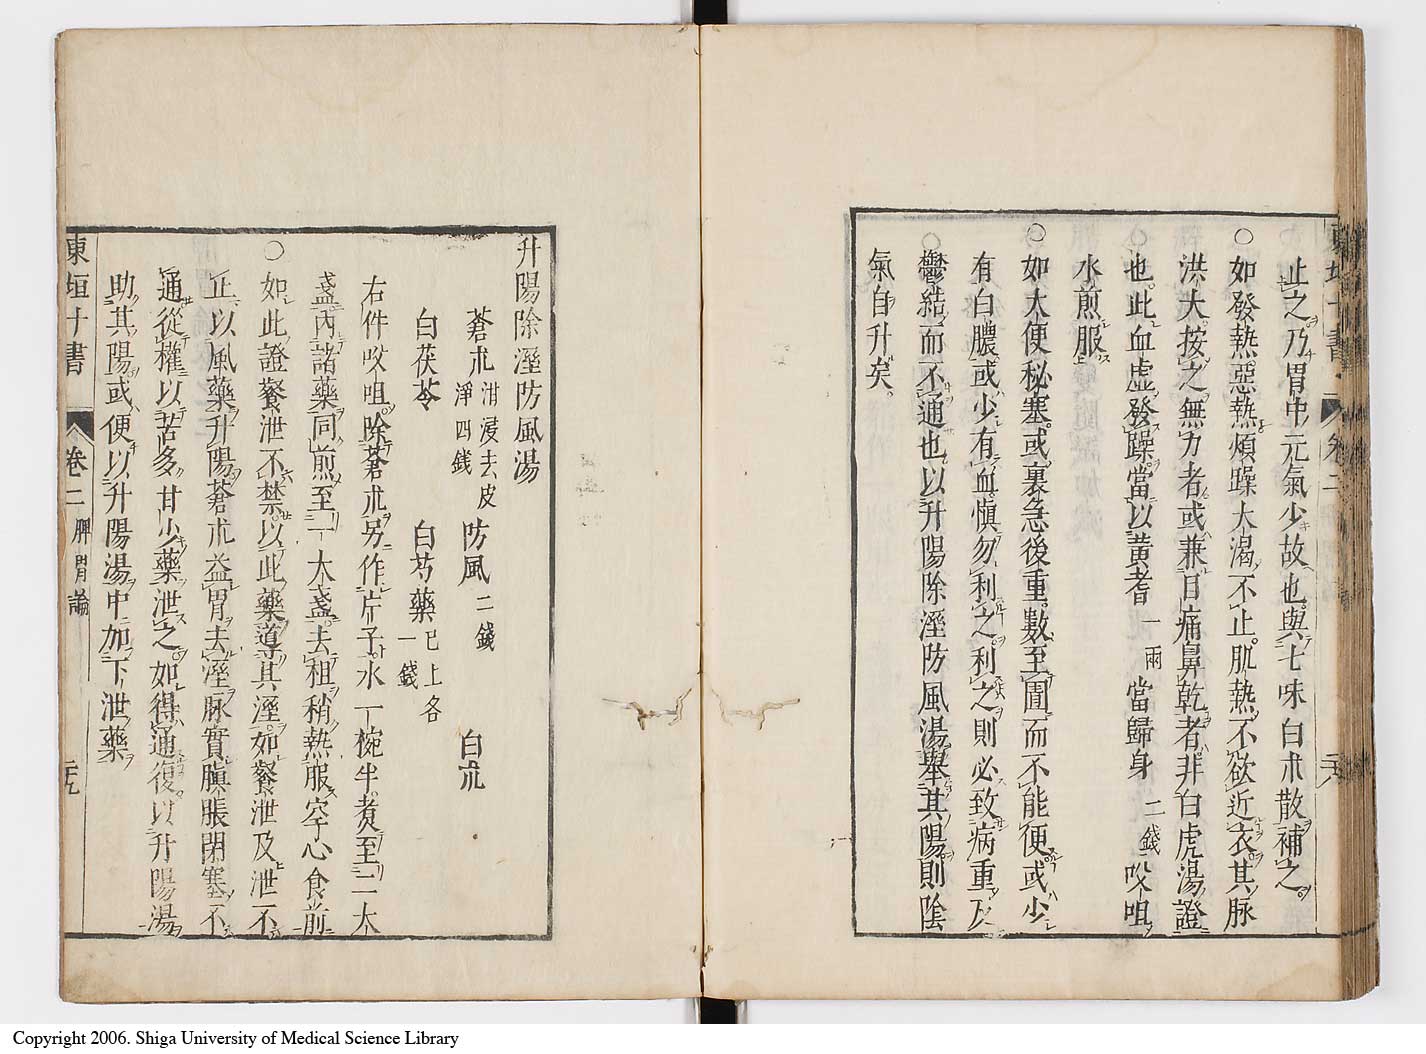 止之乃胃中元氣少故也與七味白朮散補之
○如發熱惡熱煩躁大渴不止肌熱不欲近衣其脉
洪大按之無力者或兼目痛鼻乾者非白虎湯證
也此血虛發躁當以黃耆一兩當歸身二錢㕮咀
水煎服
○如大便秘塞或裏急後重數至圊而不能便或少
有白膿或少有血慎勿利之利之則必致病重及
鬱結而不通也以升陽除溼防風湯舉其陽則陰
氣自升矣
升陽除溼防風湯
蒼朮泔浸去皮淨四錢 防風二錢 白朮
白茯苓 白芍藥已上各一錢
右件㕮咀除蒼朮另作片子水一椀半煑至二大
盞內諸藥同煎至一大盞去柤稍熱服空心食前
○如此證飧泄不禁以此藥導其溼如飧泄及泄不
止以風藥升陽蒼朮益胃去溼脉實䐜脹閉塞不
通從權以苦多甘少藥泄之如得通復以升陽湯
助其陽或便以升陽湯中加下泄藥
東垣十書 卷二 脾胃論 二十九
Copyright 2006. Shiga University of Medical Science Library